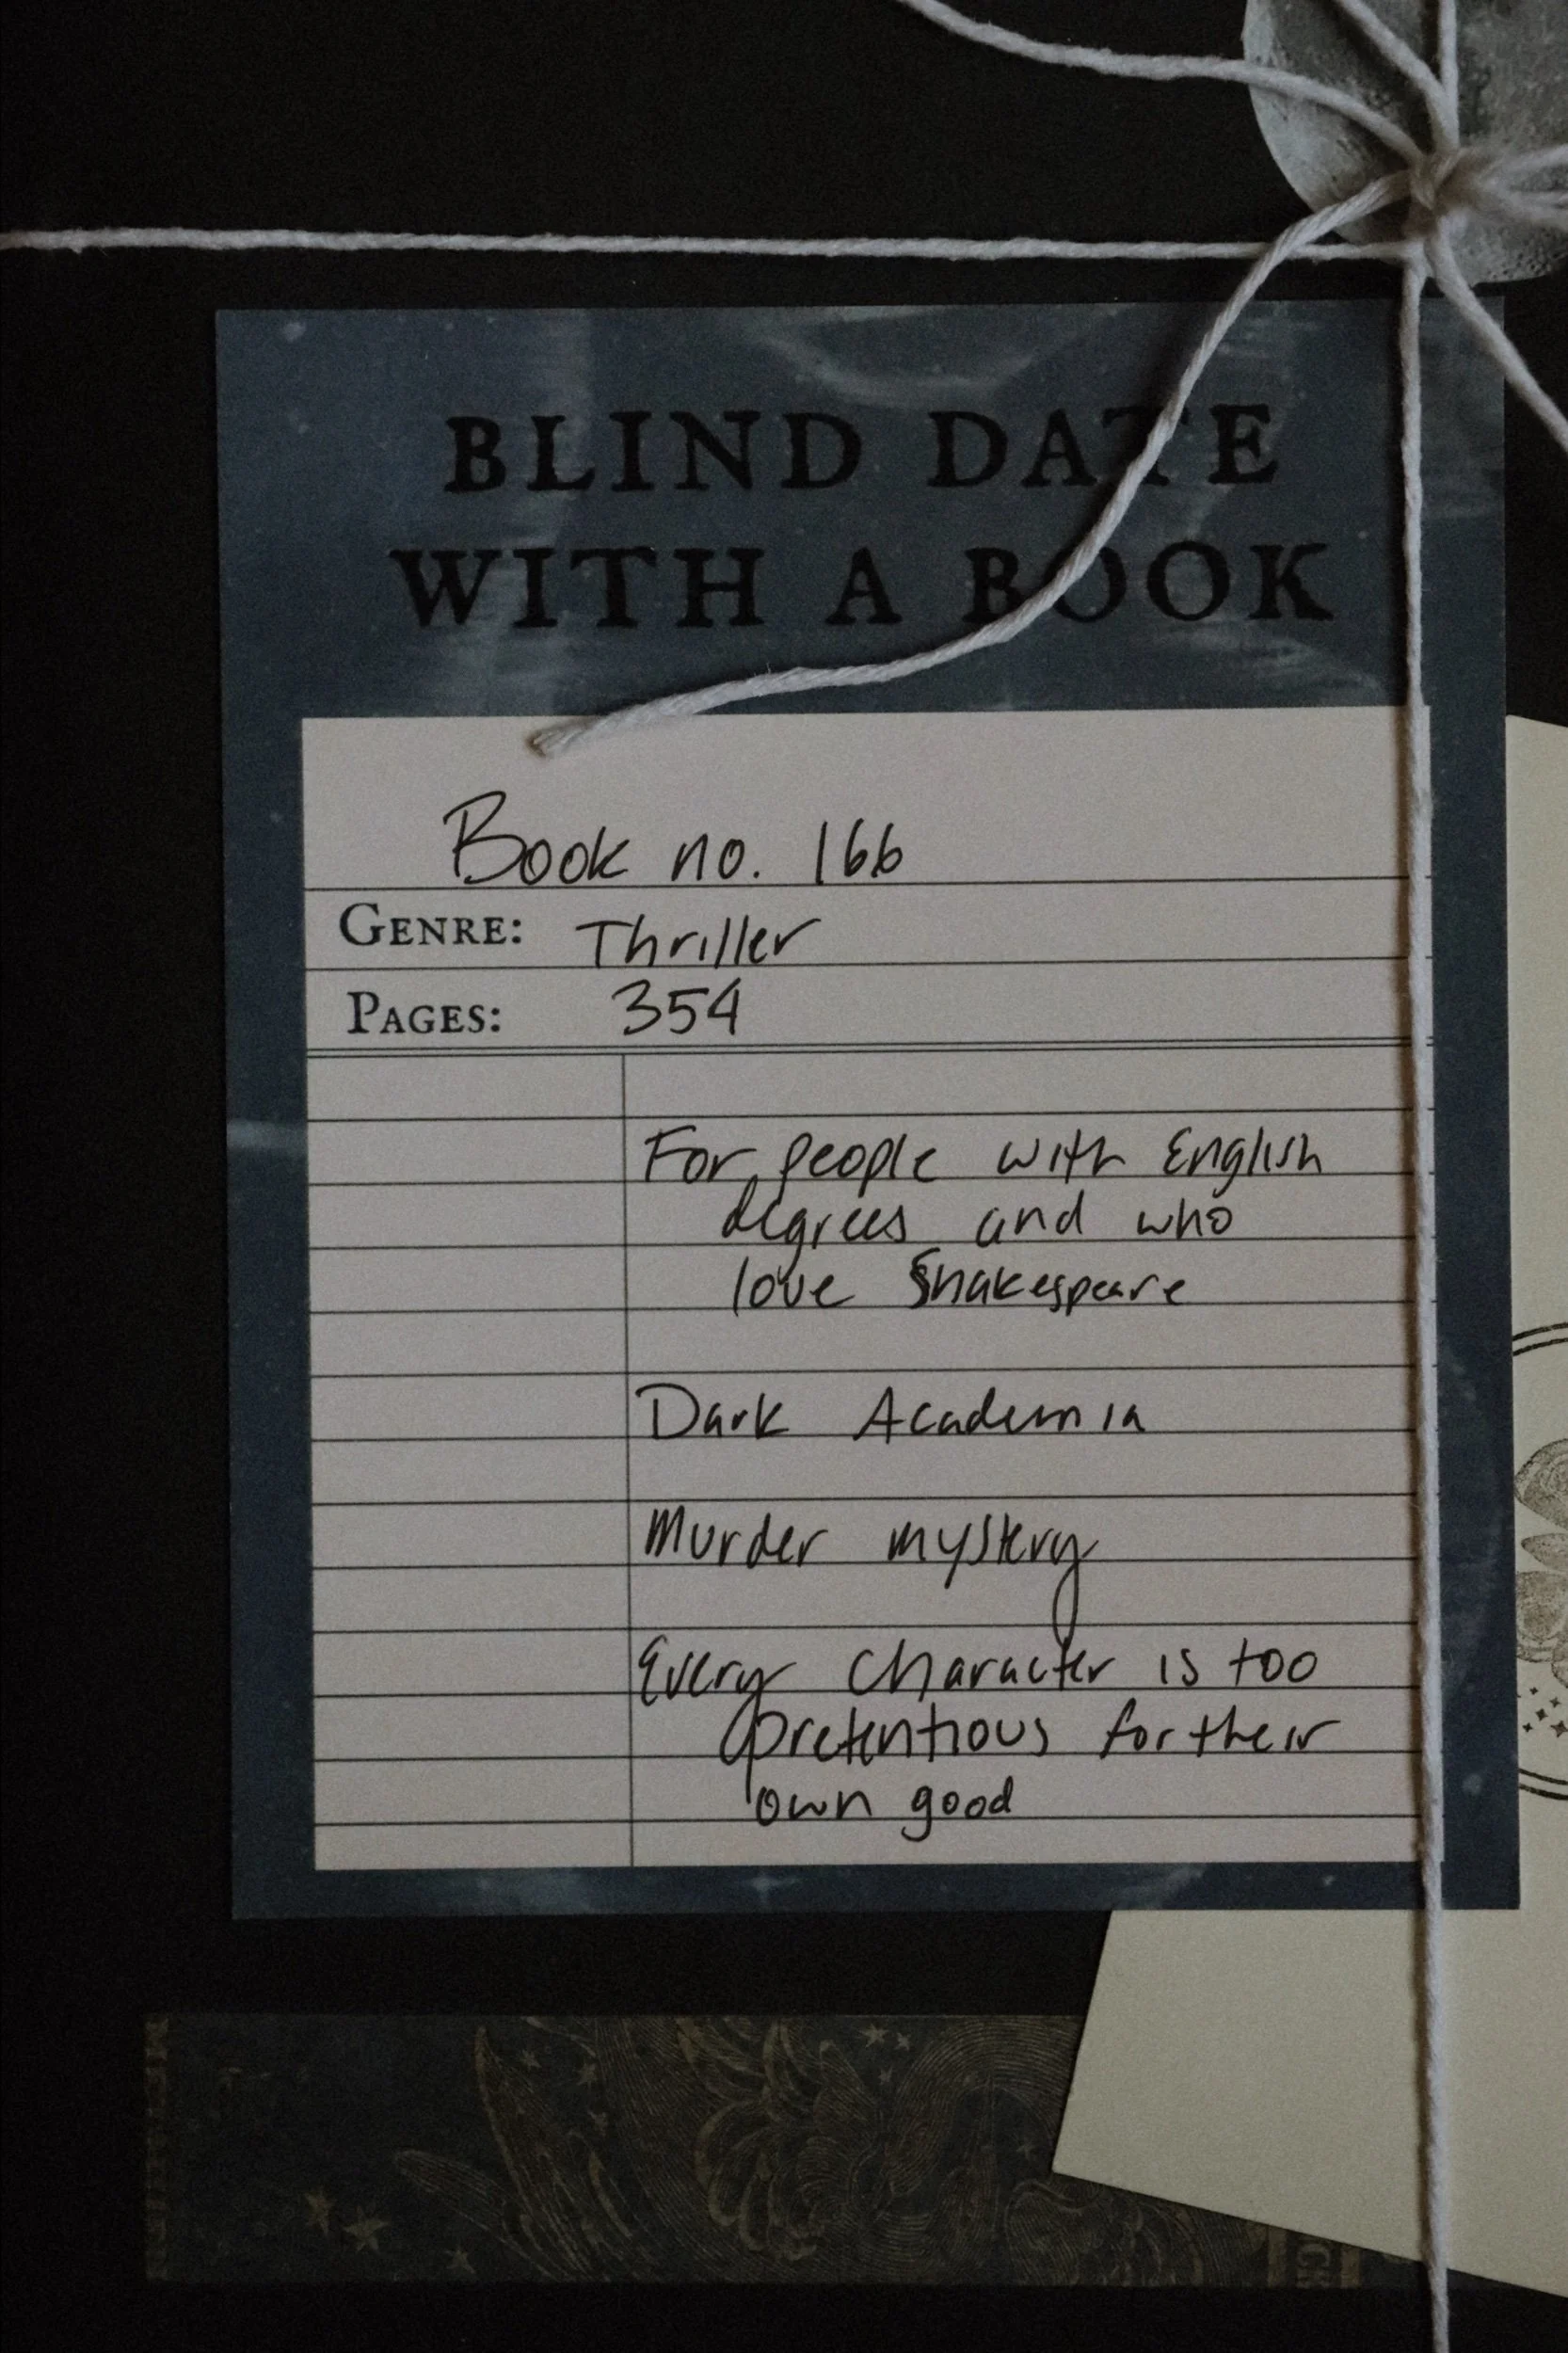 BLIND DATE
WITH A BOOK
Book no. 166
GENRE: Thriller
PAGES: 354
For people with English
degrees and who
love Shakespeare
Dark Academia
Murder mystery
Every character is too
pretentious for their
own good